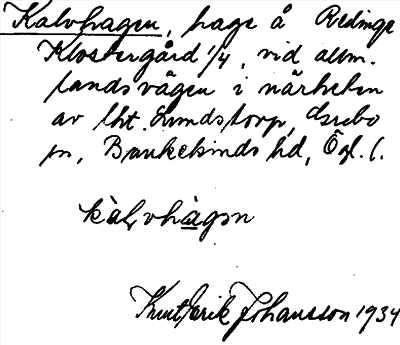 Kalvhagen, hage å Redinge
Klostergård 1/4, vid allm.
landsvägen i närheten
av lht. Lundstorp, Grebo
sn, Bankekinds hd, Ögl. l.
kàlvhàgən
Knut Erik Johansson 1934